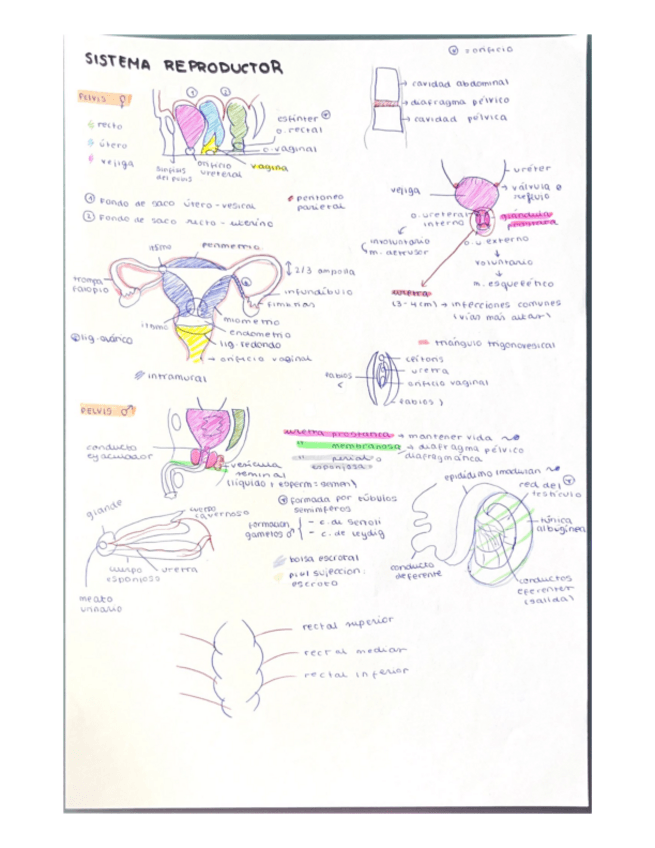 ⊙ = orificio
SISTEMA REPRODUCTOR
PELVIS ♀
recto
útero
vejiga
① ②
esfínter
o. rectal
o. vaginal
vagina
orificio
ureteral
sínfisis
del pubis
cavidad abdominal
diafragma pélvico
cavidad pélvica
① Fondo de saco útero-vesical
② Fondo de saco recto-uterino
peritoneo
parietal
uréter
válvula
reflujo
vejiga
o. ureteral
interno
glándula
próstata
involuntario
m. detrusor
o. u. externo
voluntario
m. esquelético
uretra
(3-4cm) → infecciones comunes
(vías más altas)
istmo
perimetrio
2/3 ampolla
trompa
falopio
infundíbulo
fimbrias
istmo
miometrio
endometrio
lig. redondo
orificio vaginal
lig. ovárico
intramural
triángulo trigonovesical
clítoris
uretra
orificio vaginal
labios <
labios >
PELVIS ♂
conducto
eyaculador
vesícula
seminal
(líquido + esperm = semen)
uretra prostática → mantener vida
" membranosa → diafragma pélvico
esponjosa
glande
cuerpo
cavernoso
cuerpo
esponjoso
uretra
meato
urinario
formada por túbulos
seminíferos
formación
gametos ♂
- c. de sertoli
- c. de leydig
bolsa escrotal
piel sujeción:
escroto
epidídimo
red del
testículo
túnica
albugínea
conducto
deferente
conductos
eferentes
(salida)
rectal superior
rectal mediar
rectal inferior